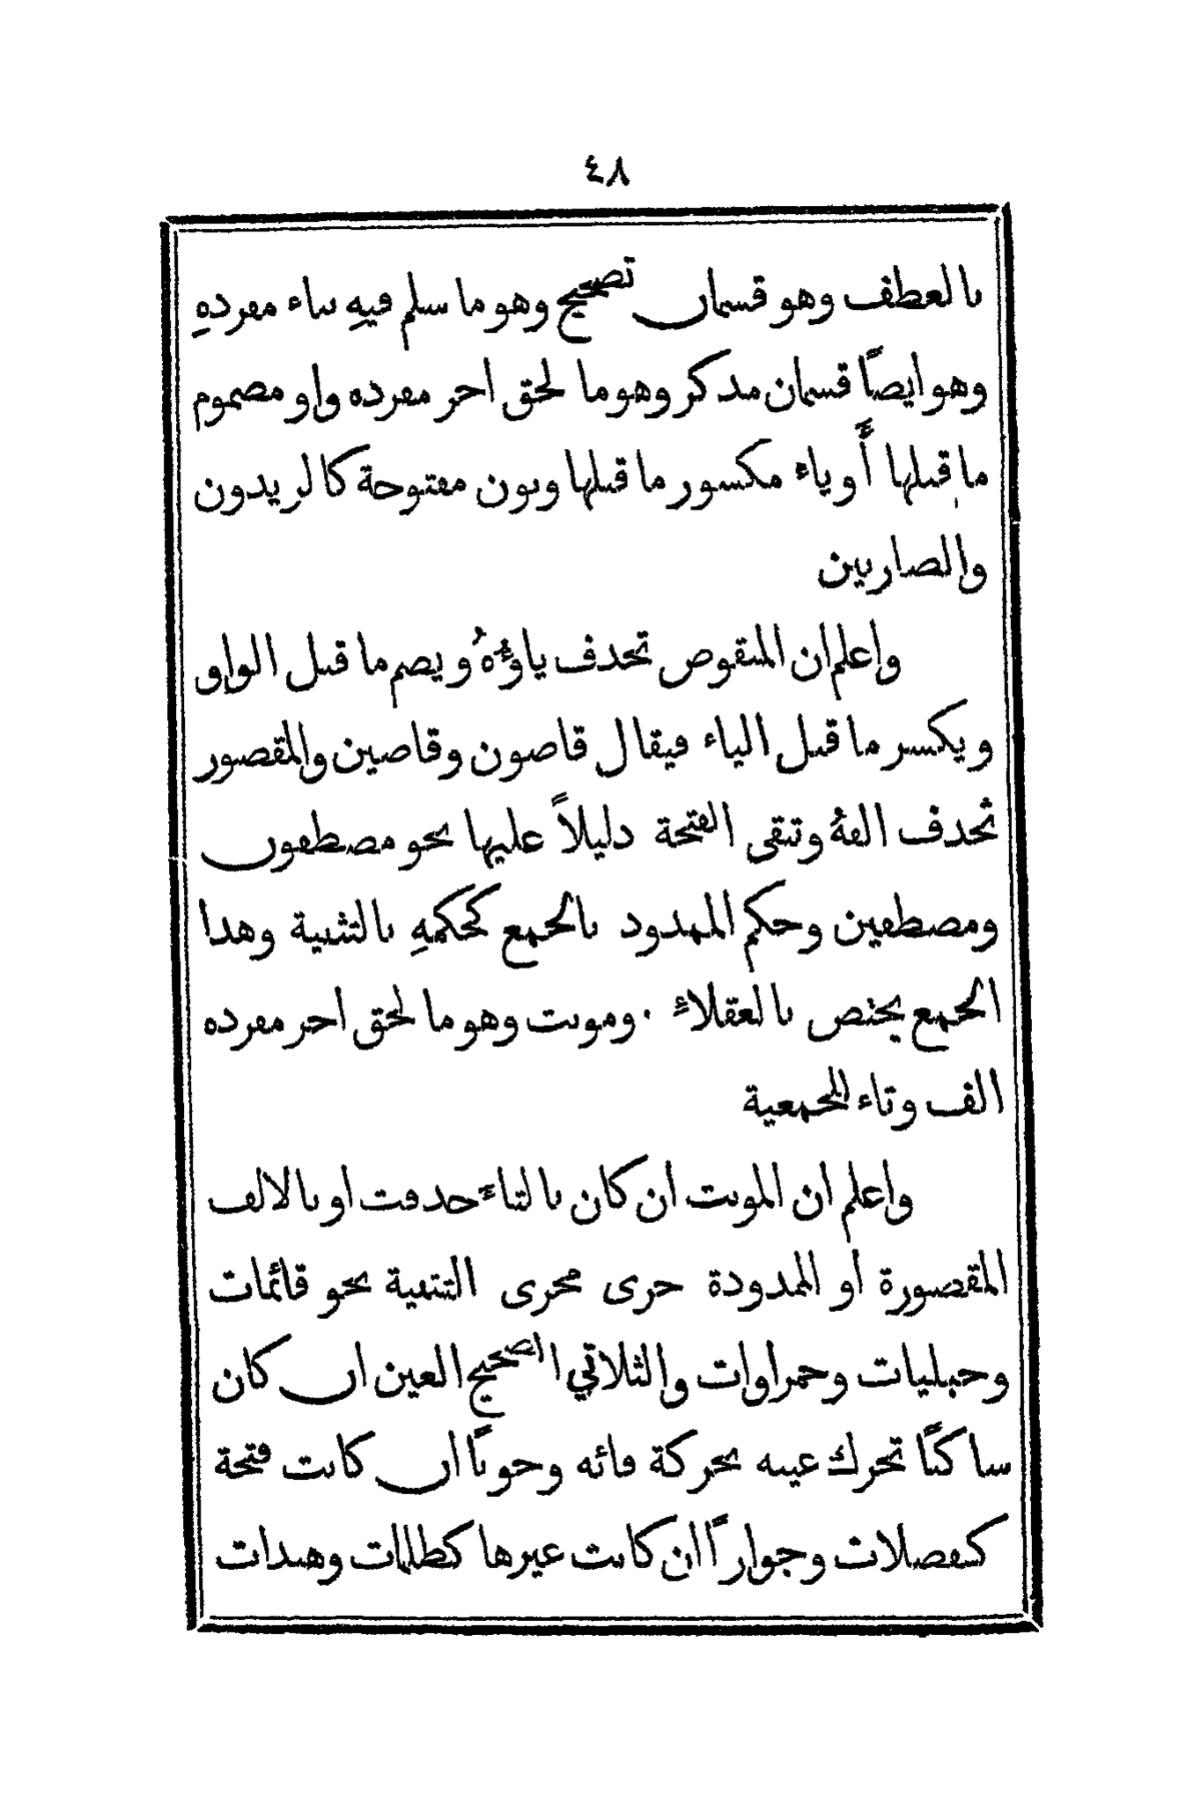 ٤٨
بالعطف وهو قسمان تصحيح وهو ما سلم فيهِ بناء مفردهِ
وهو ايضًا قسمان مذكر وهو ما لحق اخر مفرده واو مضموم
ما قبلها أو ياء مكسور ما قبلها ونون مفتوحة كالزيدون
والضاربين
واعلم ان المنقوص تحذف ياؤهُ ويضم ما قبل الواو
ويكسر ما قبل الياء فيقال قاضون وقاضين والمقصور
تحذف الفهُ وتبقى الفتحة دليلاً عليها نحو مصطفون
ومصطفين وحكم الممدود بالجمع كحكمهِ بالتثنية وهذا
الجمع يختص بالعقلاءِ . ومونث وهو ما لحق اخر مفرده
الف وتاء للجمعية
واعلم ان المونث ان كان بالتاءِ حذفت او بالالف
المقصورة او الممدودة جرى مجرى التثنية نحو قائمات
وحبليات وحمراوات والثلاثي الصحيح العين ان كان
ساكنًا تحرك عينه بحركة فائه وجوبًا ان كانت فتحة
كفضلات وجوازًا ان كانت غيرها كظلمات وهندات